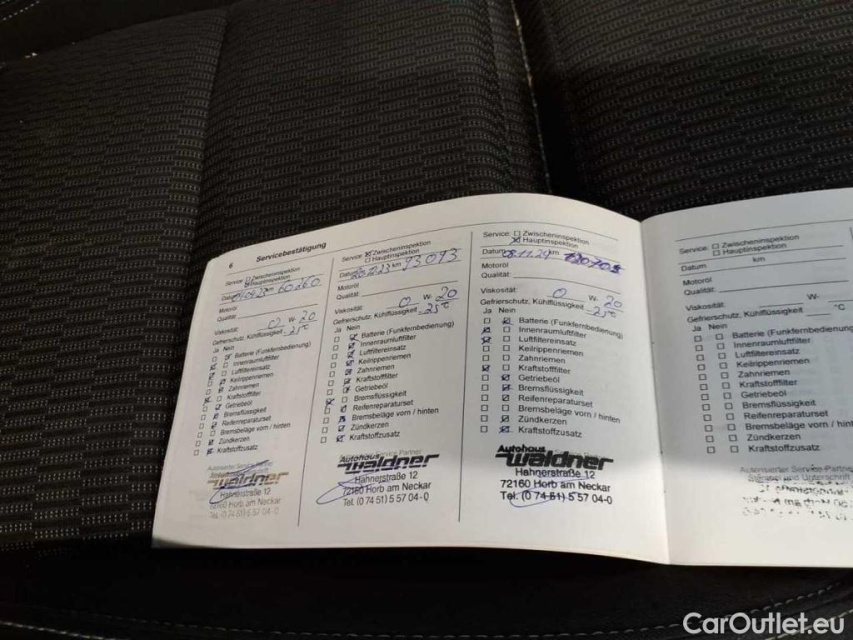 6 Servicebestätigung
Service: Zwischeninspektion
Hauptinspektion
Datum 04.04.23 km 60260
Motoröl
Qualität:
Viskosität: 0 W- 20
Gefrierschutz, Kühlflüssigkeit -25 °C
Ja Nein
Batterie (Funkfernbedienung)
Innenraumluftfilter
Luftfiltereinsatz
Keilrippenriemen
Zahnriemen
Kraftstofffilter
Getriebeöl
Bremsflüssigkeit
Reifenreparaturset
Bremsbeläge vorn / hinten
Zündkerzen
Kraftstoffzusatz
Autohaus
Waldner
Hahnerstraße 12
72160 Horb am Neckar
Tel. (0 74 51) 5 57 04-0
Service: Zwischeninspektion
Hauptinspektion
Datum 20.12.23 km 93093
Motoröl
Qualität:
Viskosität: 0 W- 20
Gefrierschutz, Kühlflüssigkeit -25 °C
Ja Nein
Batterie (Funkfernbedienung)
Innenraumluftfilter
Luftfiltereinsatz
Keilrippenriemen
Zahnriemen
Kraftstofffilter
Getriebeöl
Bremsflüssigkeit
Reifenreparaturset
Bremsbeläge vorn / hinten
Zündkerzen
Kraftstoffzusatz
Autohaus Service Partner
Waldner
Hahnerstraße 12
72160 Horb am Neckar
Tel. (0 74 51) 5 57 04-0
Service: Zwischeninspektion
Hauptinspektion
Datum 28.11.24 km
Motoröl
Qualität:
Viskosität: 0 W- 20
Gefrierschutz, Kühlflüssigkeit -25 °C
Ja Nein
Batterie (Funkfernbedienung)
Innenraumluftfilter
Luftfiltereinsatz
Keilrippenriemen
Zahnriemen
Kraftstofffilter
Getriebeöl
Bremsflüssigkeit
Reifenreparaturset
Bremsbeläge vorn / hinten
Zündkerzen
Kraftstoffzusatz
Autohaus
Waldner
Hahnerstraße 12
72160 Horb am Neckar
Tel. (0 74 51) 5 57 04-0
Service: Zwischeninspektion
Hauptinspektion
Datum km
Motoröl
Qualität:
Viskosität: W-
Gefrierschutz, Kühlflüssigkeit °C
Ja Nein
Batterie (Funkfernbedienung
Innenraumluftfilter
Luftfiltereinsatz
Keilrippenriemen
Zahnriemen
Kraftstofffilter
Getriebeöl
Bremsflüssigkeit
Reifenreparaturset
Bremsbeläge vorn / hint
Zündkerzen
Kraftstoffzusatz
Autorisierter Service-Partner
CarOutlet.eu